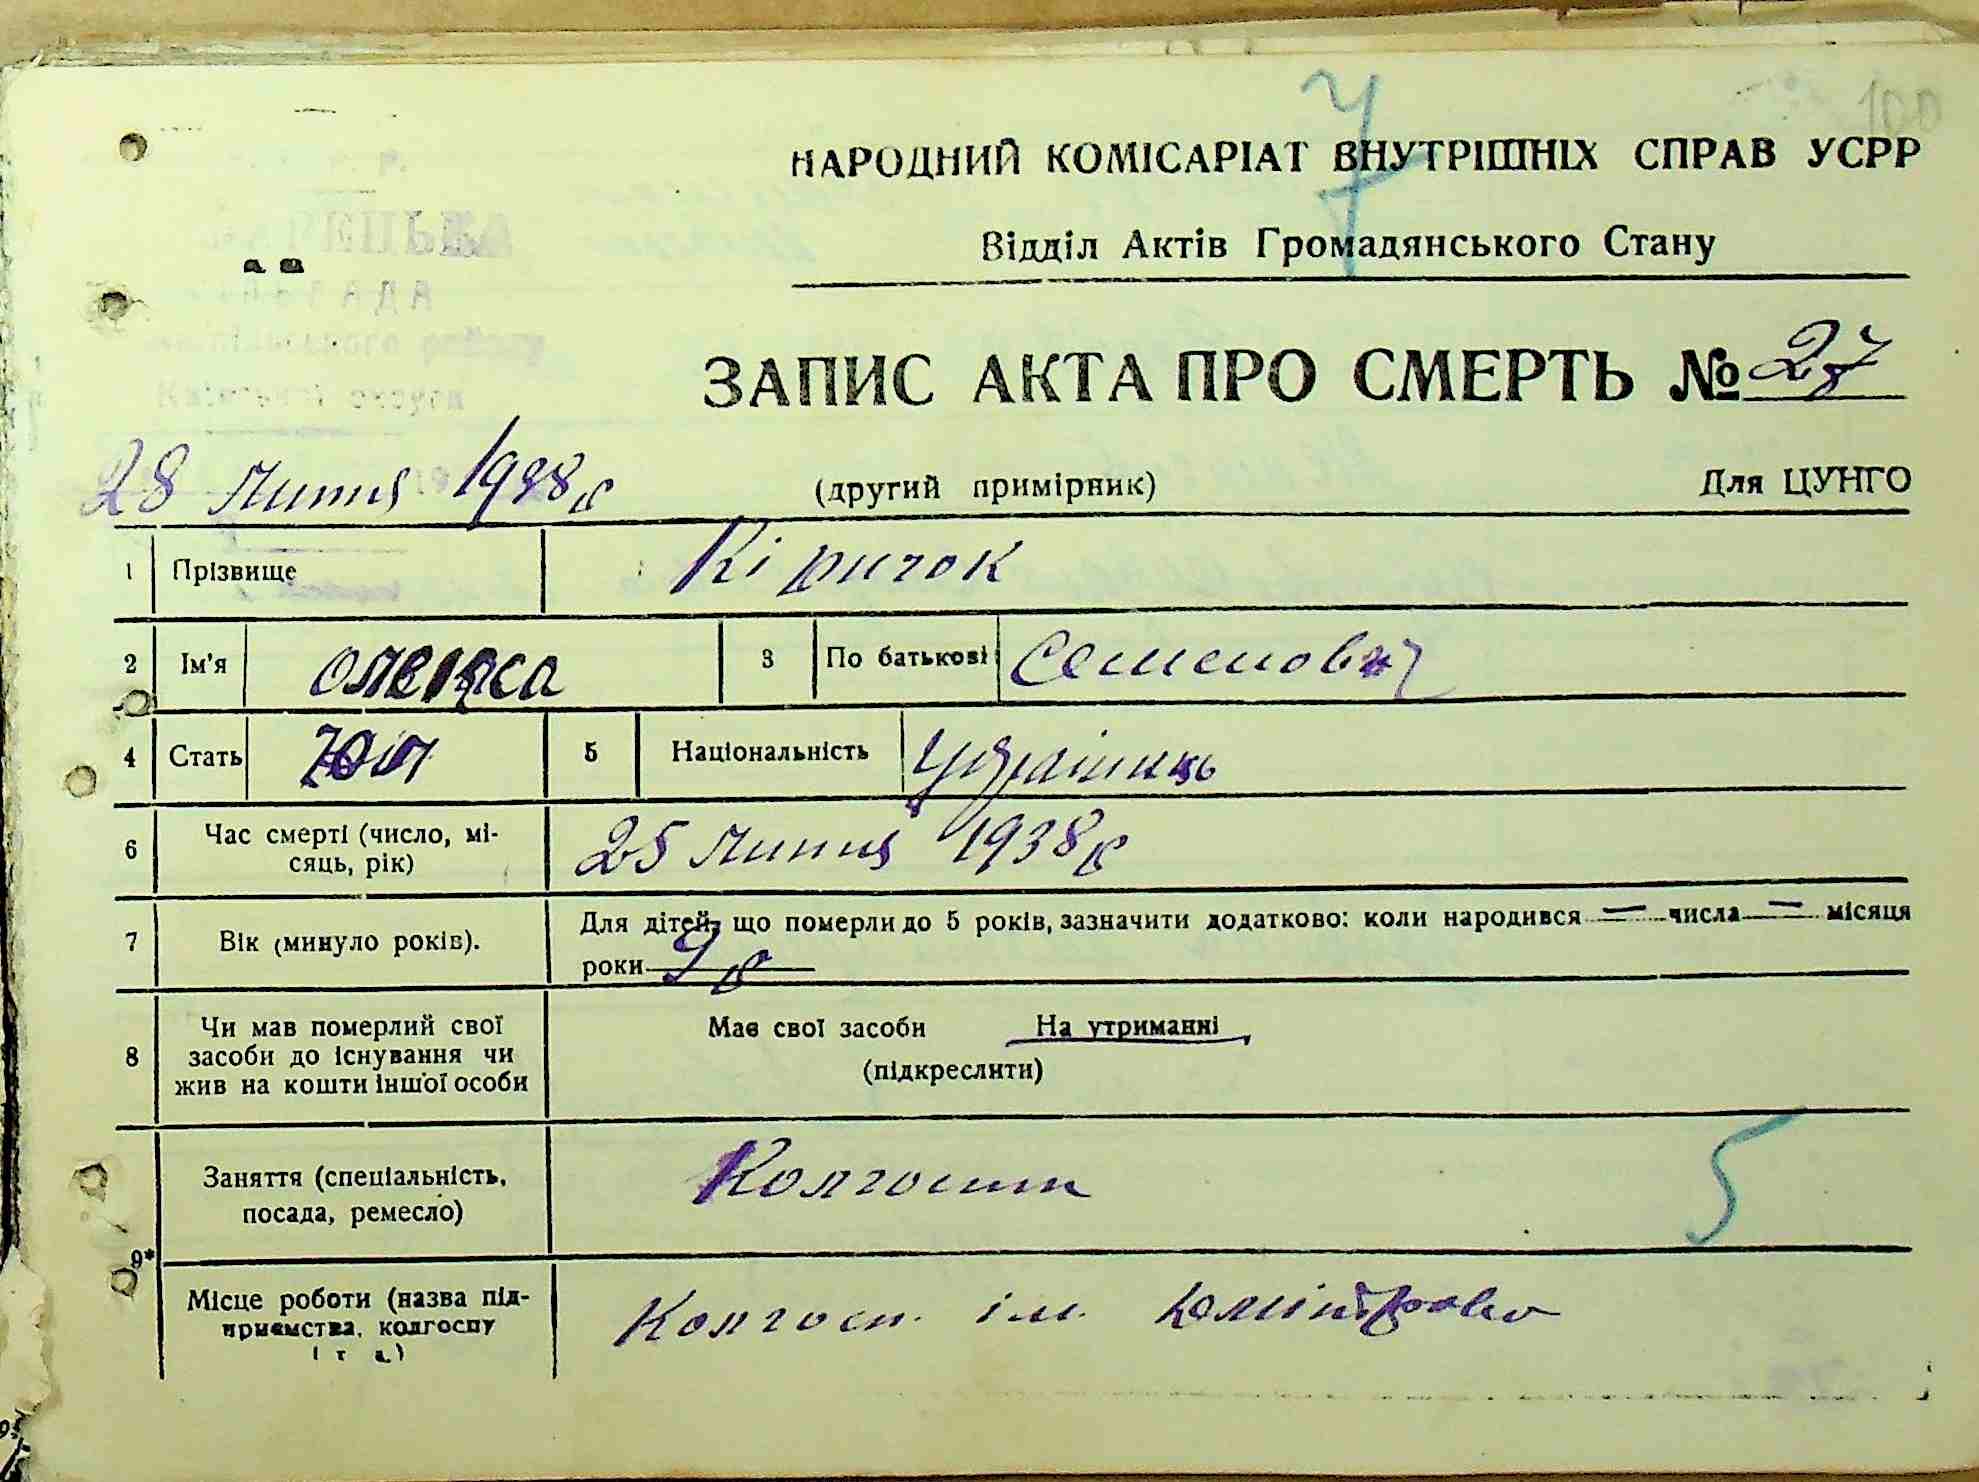 7
100
НАРОДНИЙ КОМІСАРІАТ ВНУТРІШНІХ СПРАВ УСРР
Відділ Актів Громадянського Стану
ЗАПИС АКТА ПРО СМЕРТЬ № 27
28 Липня 1938 р
(другий примірник) Для ЦУНГО
1 Прізвище Кіричок
2 Ім'я Олекса 3 По батькові Семенович
4 Стать 5 Національність Українець
6 Час смерті (число, мі-
сяць, рік) 25 Липня 1938 р
7 Вік (минуло років). Для дітей, що померли до 5 років, зазначити додатково: коли народився — числа — місяця
роки 9 р
8 Чи мав померлий свої
засоби до існування чи
жив на кошти іншої особи
Має свої засоби На утриманні
(підкреслити)
9* Заняття (спеціальність,
посада, ремесло) Колгосп
5
Місце роботи (назва під-
приємства, колгоспу
і т д.) Колгосп ім.